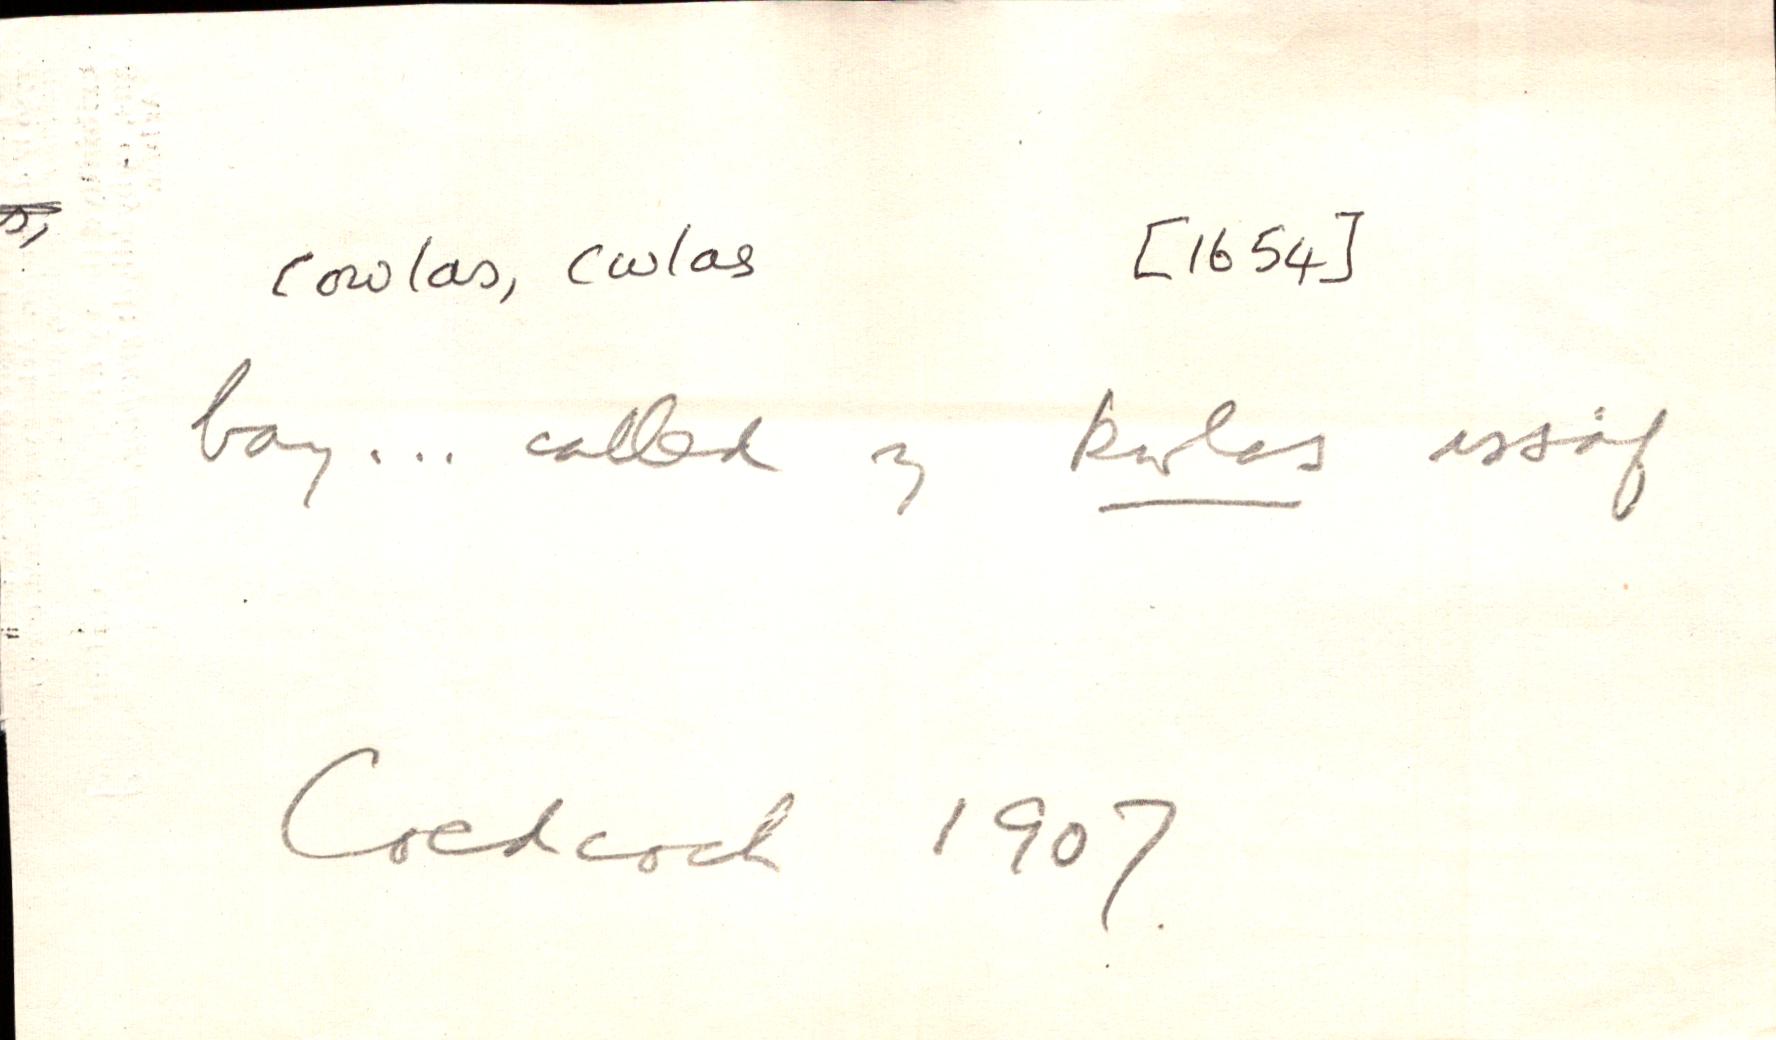 cowlas, cwlas [1654]
bay... called y kwlas issaf
Coedcoch 1907.